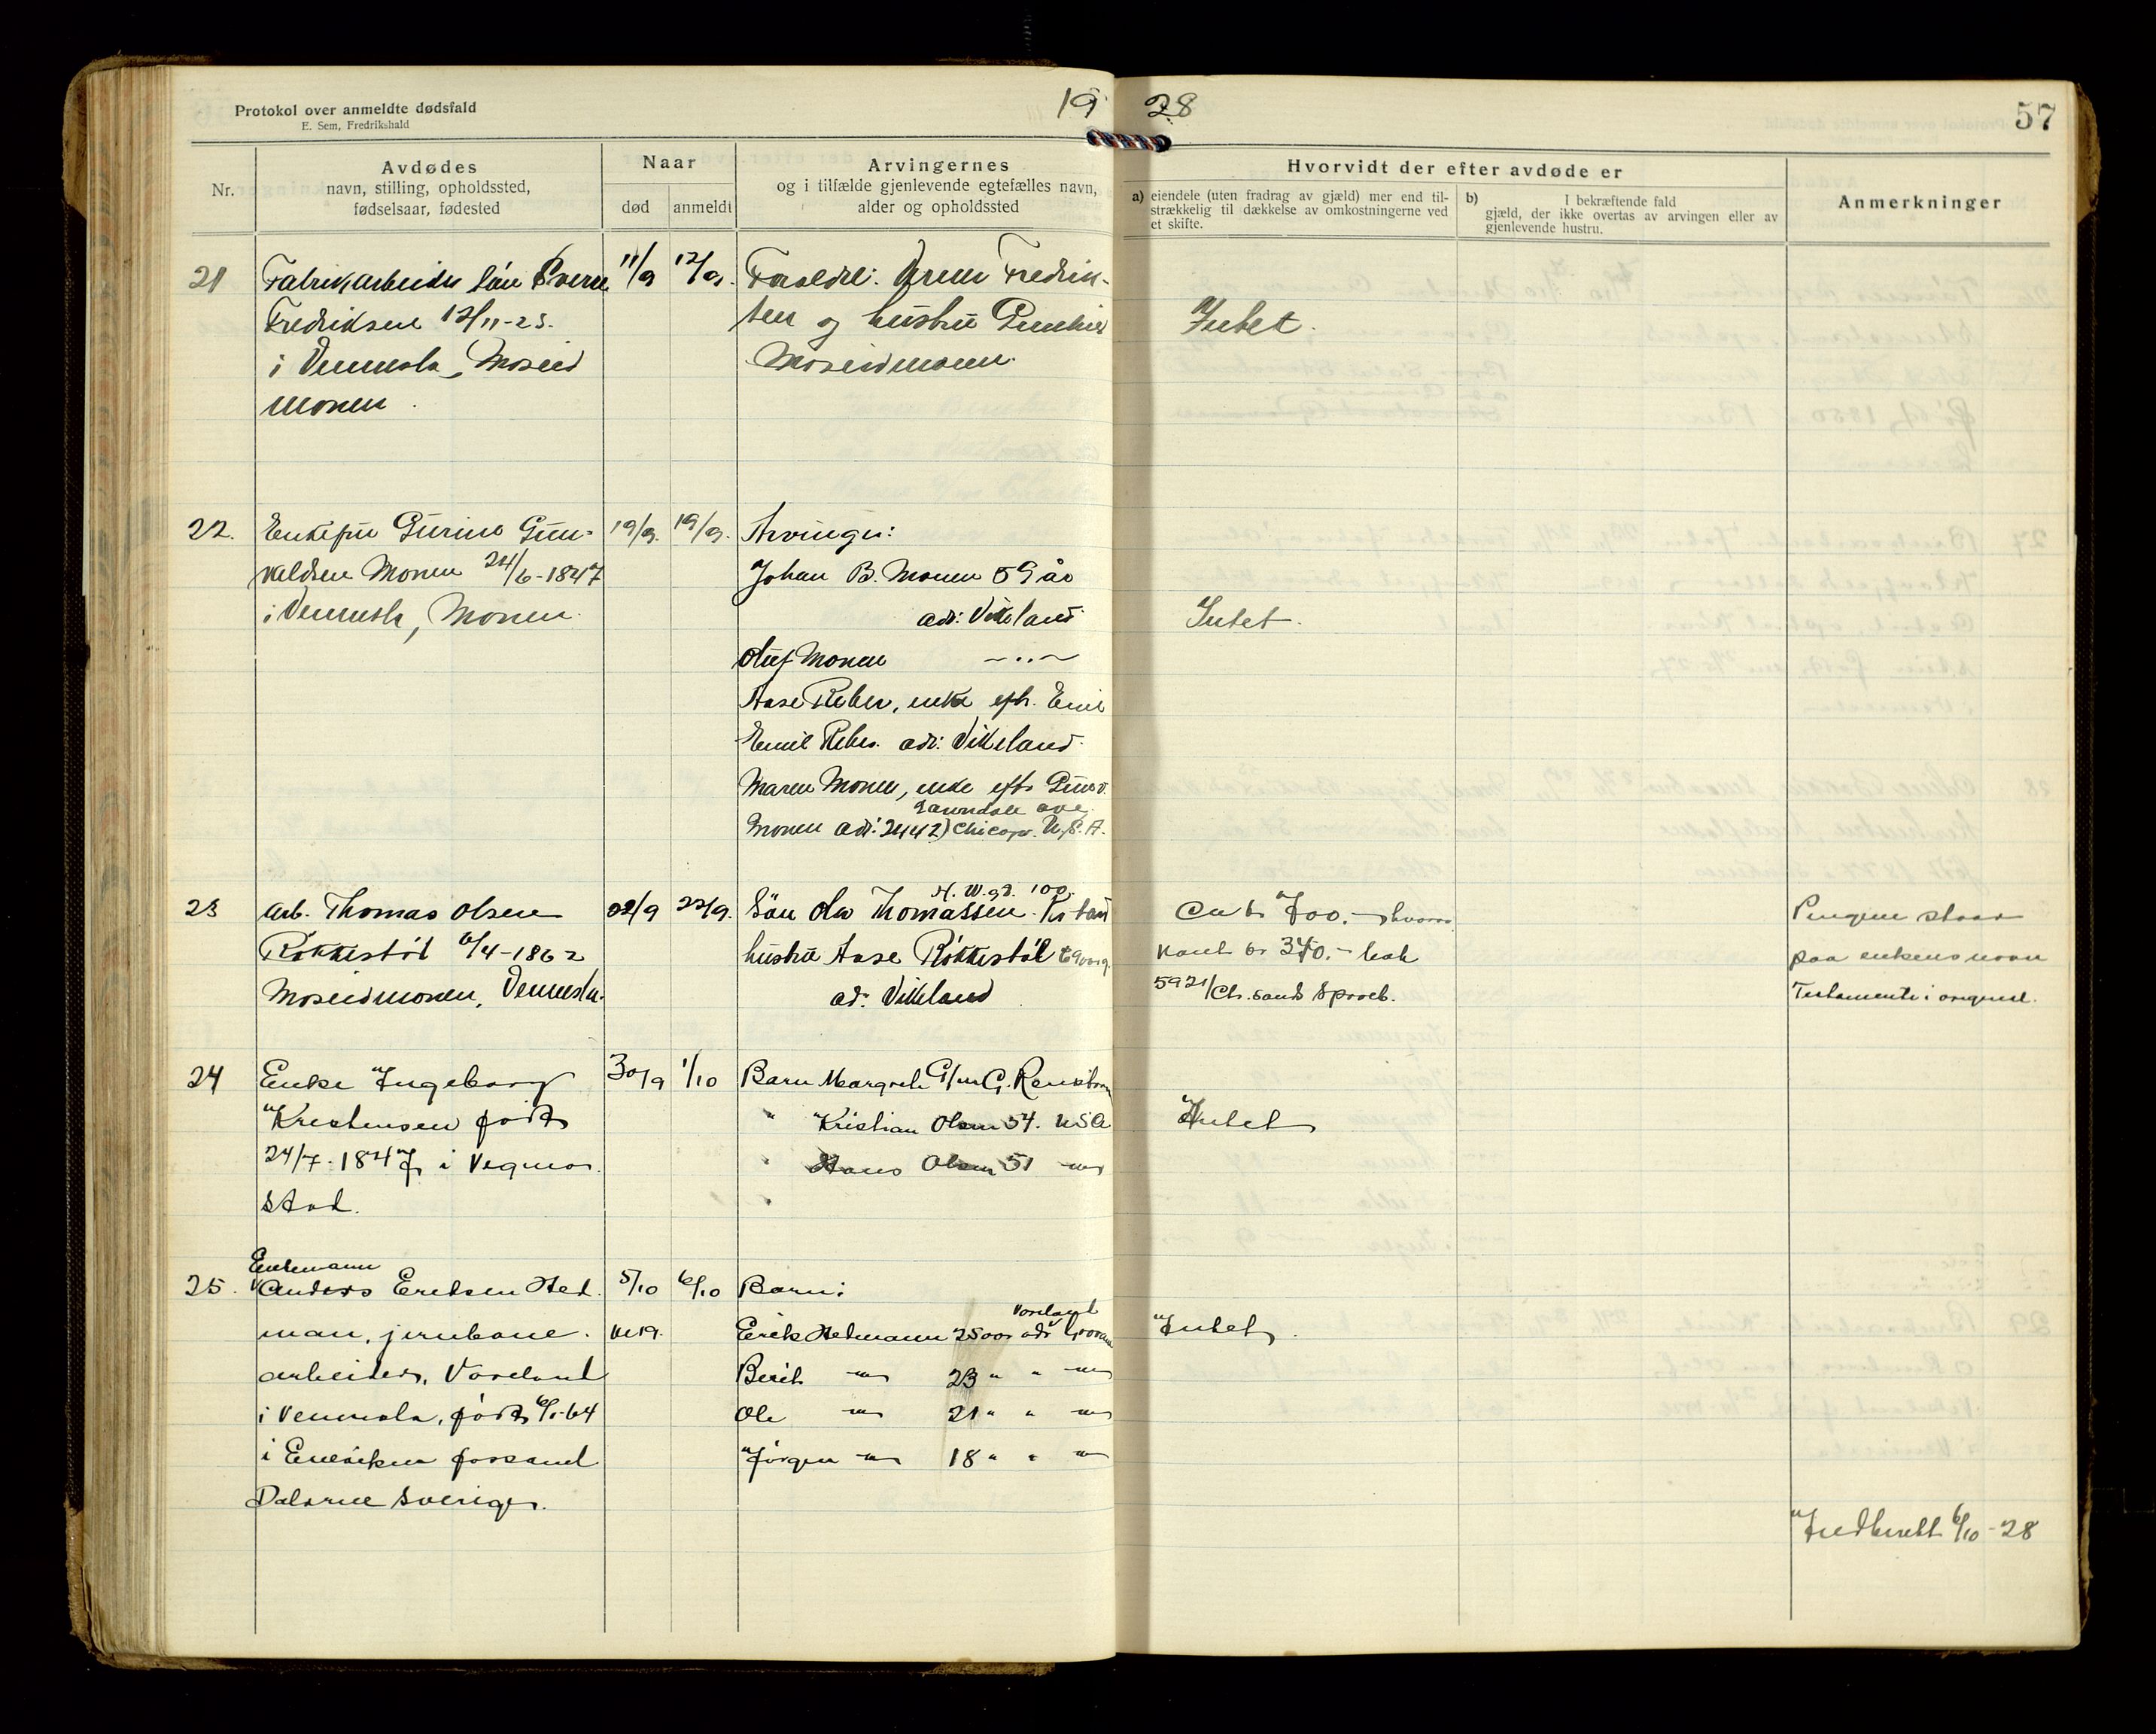 Protokol over anmeldte dødsfald
E. Sem, Fredrikshald
19 28
57
Nr.
Avdødes
navn, stilling, opholdssted,
fødselsaar, fødested
Naar
død
anmeldt
Arvingernes
og i tilfælde gjenlevende egtefælles navn,
alder og opholdssted
Hvorvidt der efter avdøde er
a) eiendele (uten fradrag av gjæld) mer end til-
strækkelig til dækkelse av omkostningerne ved
et skifte.
b) I bekræftende fald
gjæld, der ikke overtas av arvingen eller av
gjenlevende hustru.
Anmerkninger
21
Fabrikarbeider søn Sverre
Fredriksen 12/11-23.
i Vennesla, Moseid
monen.
11/9
12/9.
Foreldre: Fredrik-
sen og hustru
Moseidmonen.
Intet.
22.
Enkefru Gurine Gun-
valdsen Monen 24/6-1847
i Vennesla, Monen.
19/9.
19/9.
Arvinger:
Johan B. Monen 59 år
adr: Vikeland
Oluf Monen -"-
Aase Reber, enke efh. Emil
Emil Reber. adr: Vikeland.
Maren Monen, enke efh Gunv.
Lawndale ave
Monen adr: 2442) Chicago. U.S.A.
Intet.
23
Arb. Thomas Olsen
Røkkestøl 6/4-1862
Moseidmonen, Vennesla.
22/9
22/9.
H. W. gd. 100.
Søn Ola Thomassen. Kr.sand
hustru Aase Røkkestøl
ad: Vikeland
Ca kr 700.- hvorav
kont kr 370.- bok
5921/Ch.sands Spareb.
Pengene staar
paa enkens navn
Testamente i original.
24
Enke Ingeborg
Kristensen født
24/7-1847 i Vegus-
stad.
30/9
1/10
Barn Margrethe G/m G. Renstrøm
" Kristian Olsen 54. USA
" Hans Olsen 51 -"-
Intet
25.
Enkemann
Anders Eriksen Hed-
man, jernbane-
arbeider, Voreland
i Vennesla, født 6/1-64
i
Dalarne Sverige.
5/10
kl 19.
6/10
Barn:
Voreland
Erik Hedmann 25 aar adr
Berit -"- 23 " " -"-
Ole -"- 21 " " -"-
Jørgen -"- 18 " " -"-
Intet.
Indberett 6/10-28